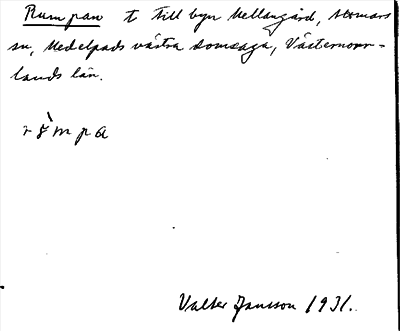 Rumpan t till byn Mellangård, Stomars
sn, Medelpads västra domsaga, Västernorr-
lands län.
Valter Jansson 1931.